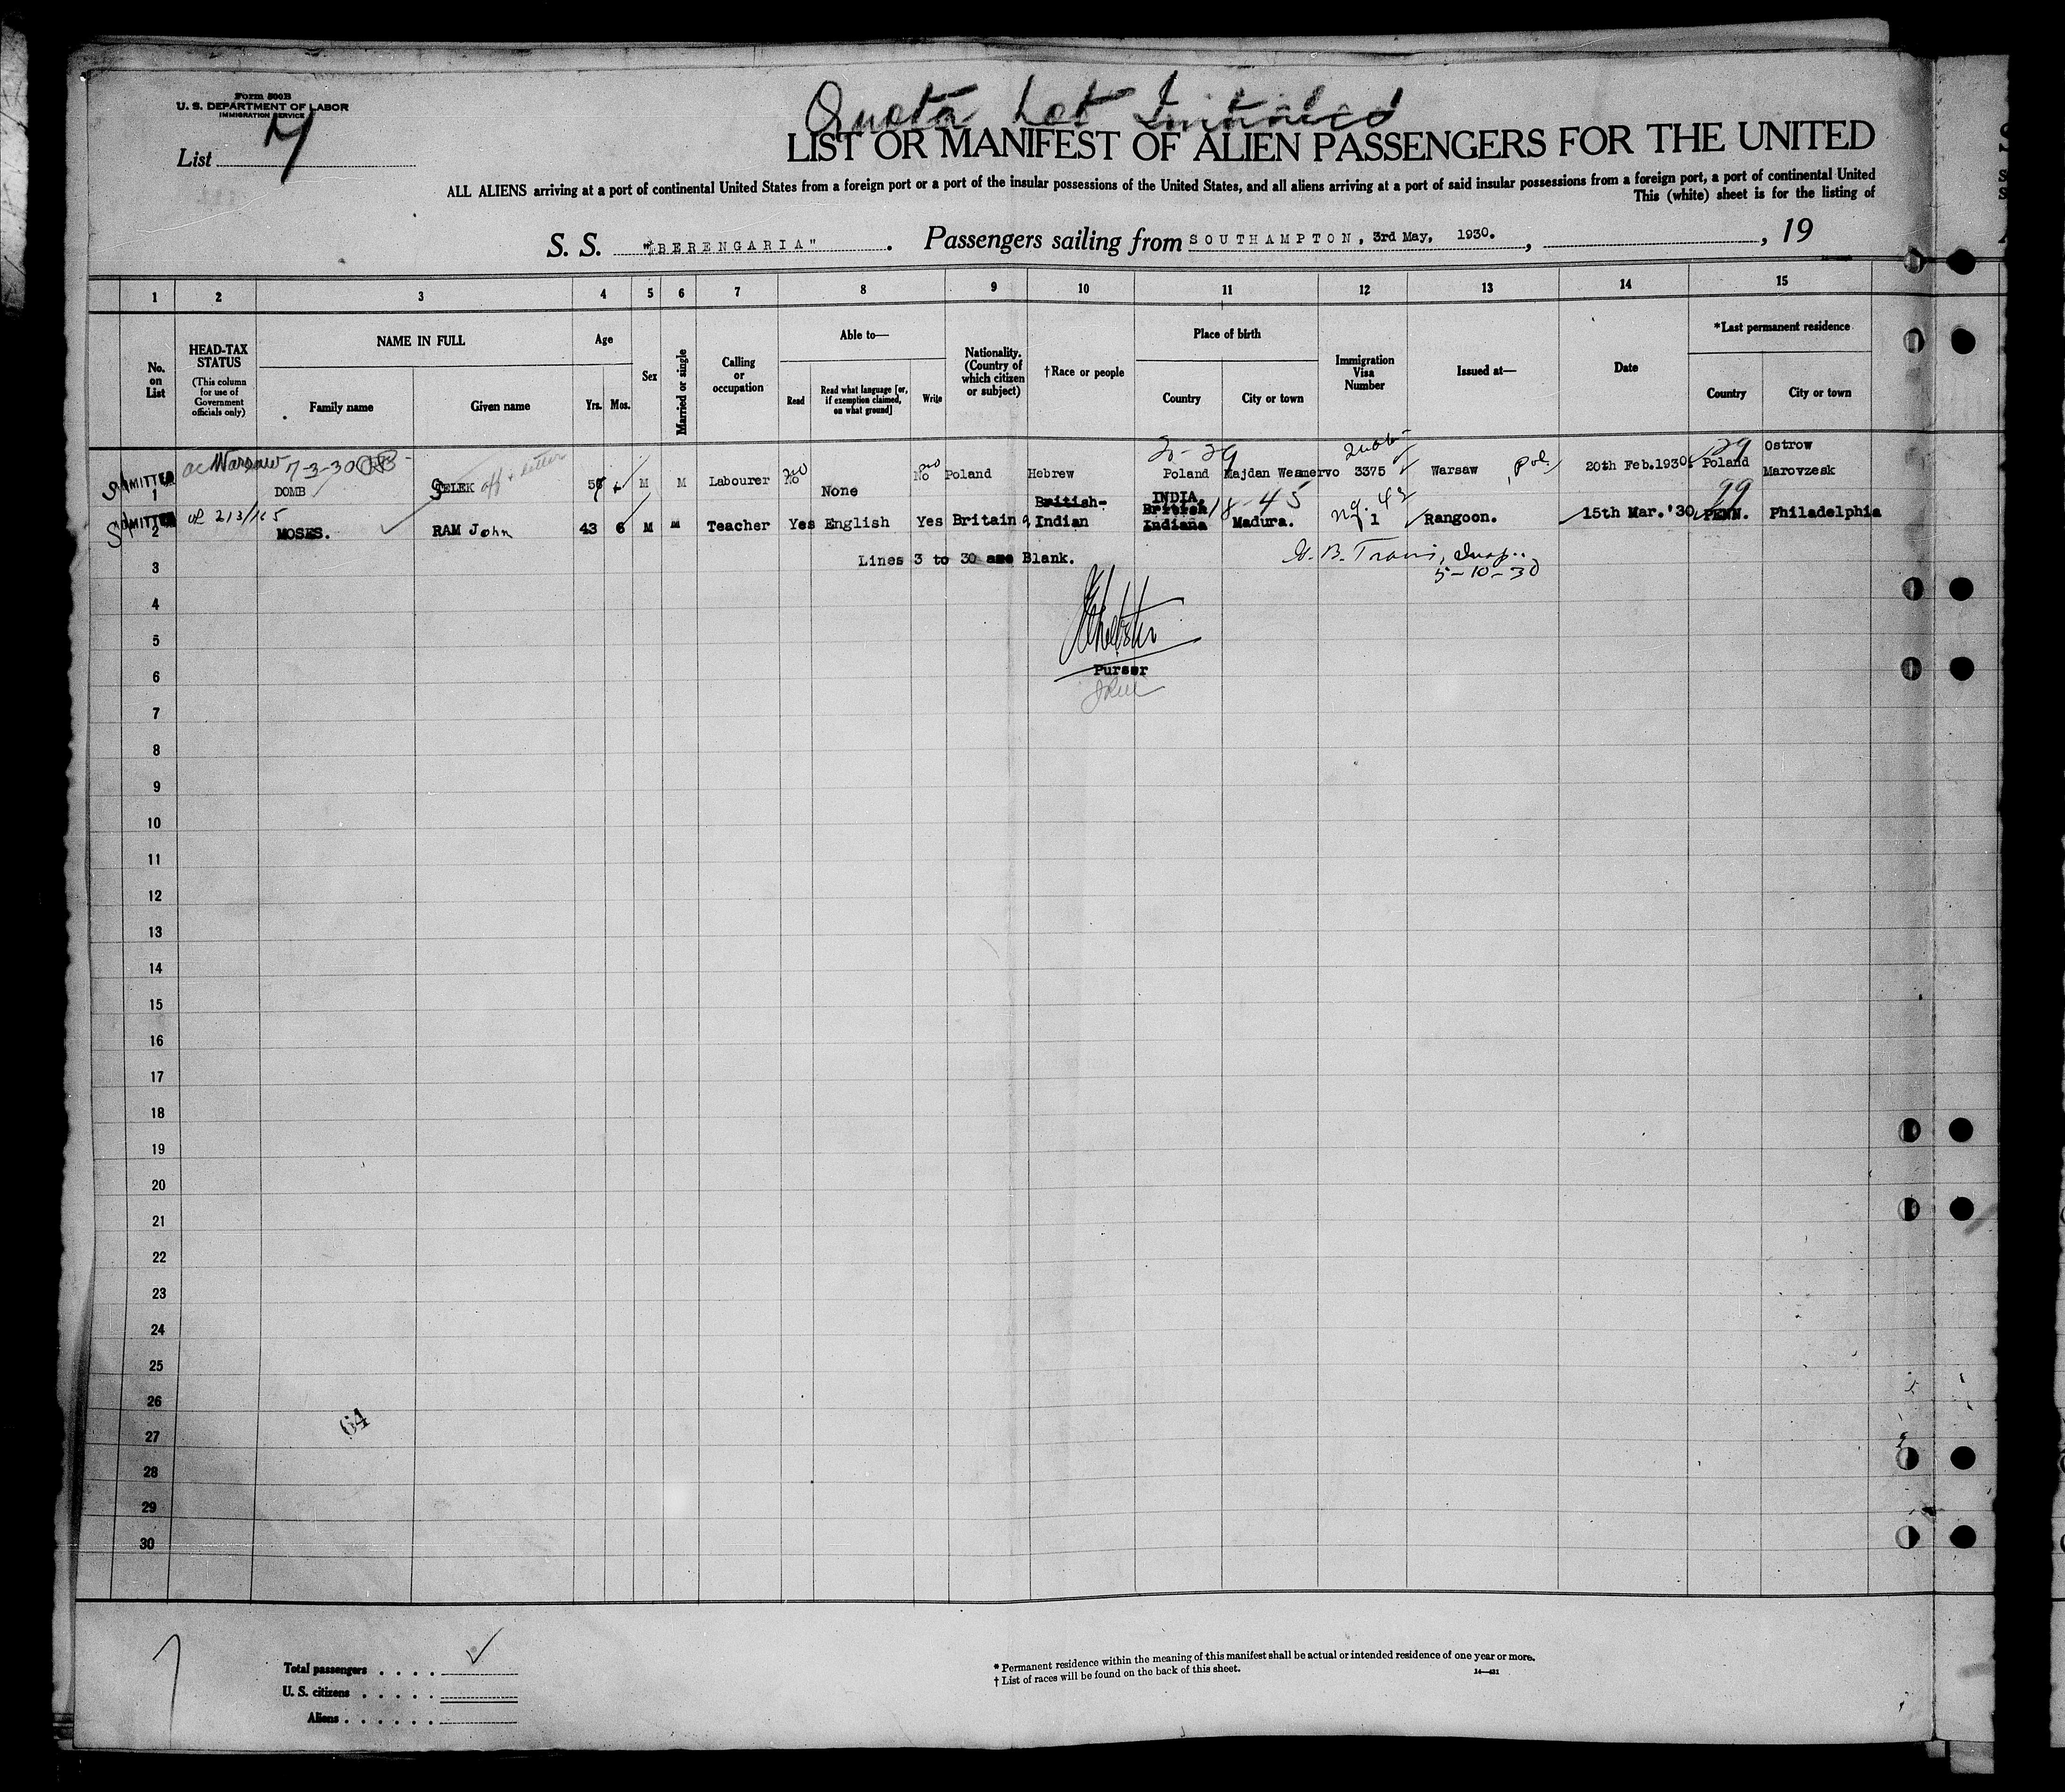 Form 500B
U. S. DEPARTMENT OF LABOR
IMMIGRATION SERVICE
List
LIST OR MANIFEST OF ALIEN PASSENGERS FOR THE UNITED
ALL ALIENS arriving at a port of continental United States from a foreign port or a port of the insular possessions of the United States, and all aliens arriving at a port of said insular possessions from a foreign port, a port of continental United
This (white) sheet is for the listing of
S. S. "BERENGARIA". Passengers sailing from SOUTHAMPTON, 3rd May, 1930. , , 19
1 2 3 4 5 6 7 8 9 10 11 12 13 14 15
No. on List
HEAD-TAX STATUS (This column for use of Government officials only)
NAME IN FULL
Family name Given name
Age
Yrs. Mos.
Sex
Married or single
Calling or occupation
Able to—
Read Read what language [or, if exemption claimed, on what ground] Write
Nationality. (Country of which citizen or subject)
†Race or people
Place of birth
Country City or town
Immigration Visa Number
Issued at—
Date
*Last permanent residence
Country City or town
ADMITTED Warsaw 7-3-30
1 DOMB M M Labourer No None No Poland Hebrew Poland Majdan 3375 Warsaw 20th Feb.1930. Poland Ostrow Marovzesk
ADMITTED
2 MOSES. RAM John 43 6 M M Teacher Yes English Yes Britain British- Indian INDIA. British Indiana 18-45 Madura. 1 Rangoon. 15th Mar.'30 PENN. Philadelphia
3 Lines 3 to 30 are Blank.
5-10-30
4
5
6 Purser
7
8
9
10
11
12
13
14
15
16
17
18
19
20
21
22
23
24
25
26
64
27
28
29
30
Total passengers . . . .
U. S. citizens . . . . .
Aliens . . . . . .
* Permanent residence within the meaning of this manifest shall be actual or intended residence of one year or more.
† List of races will be found on the back of this sheet.
14—421